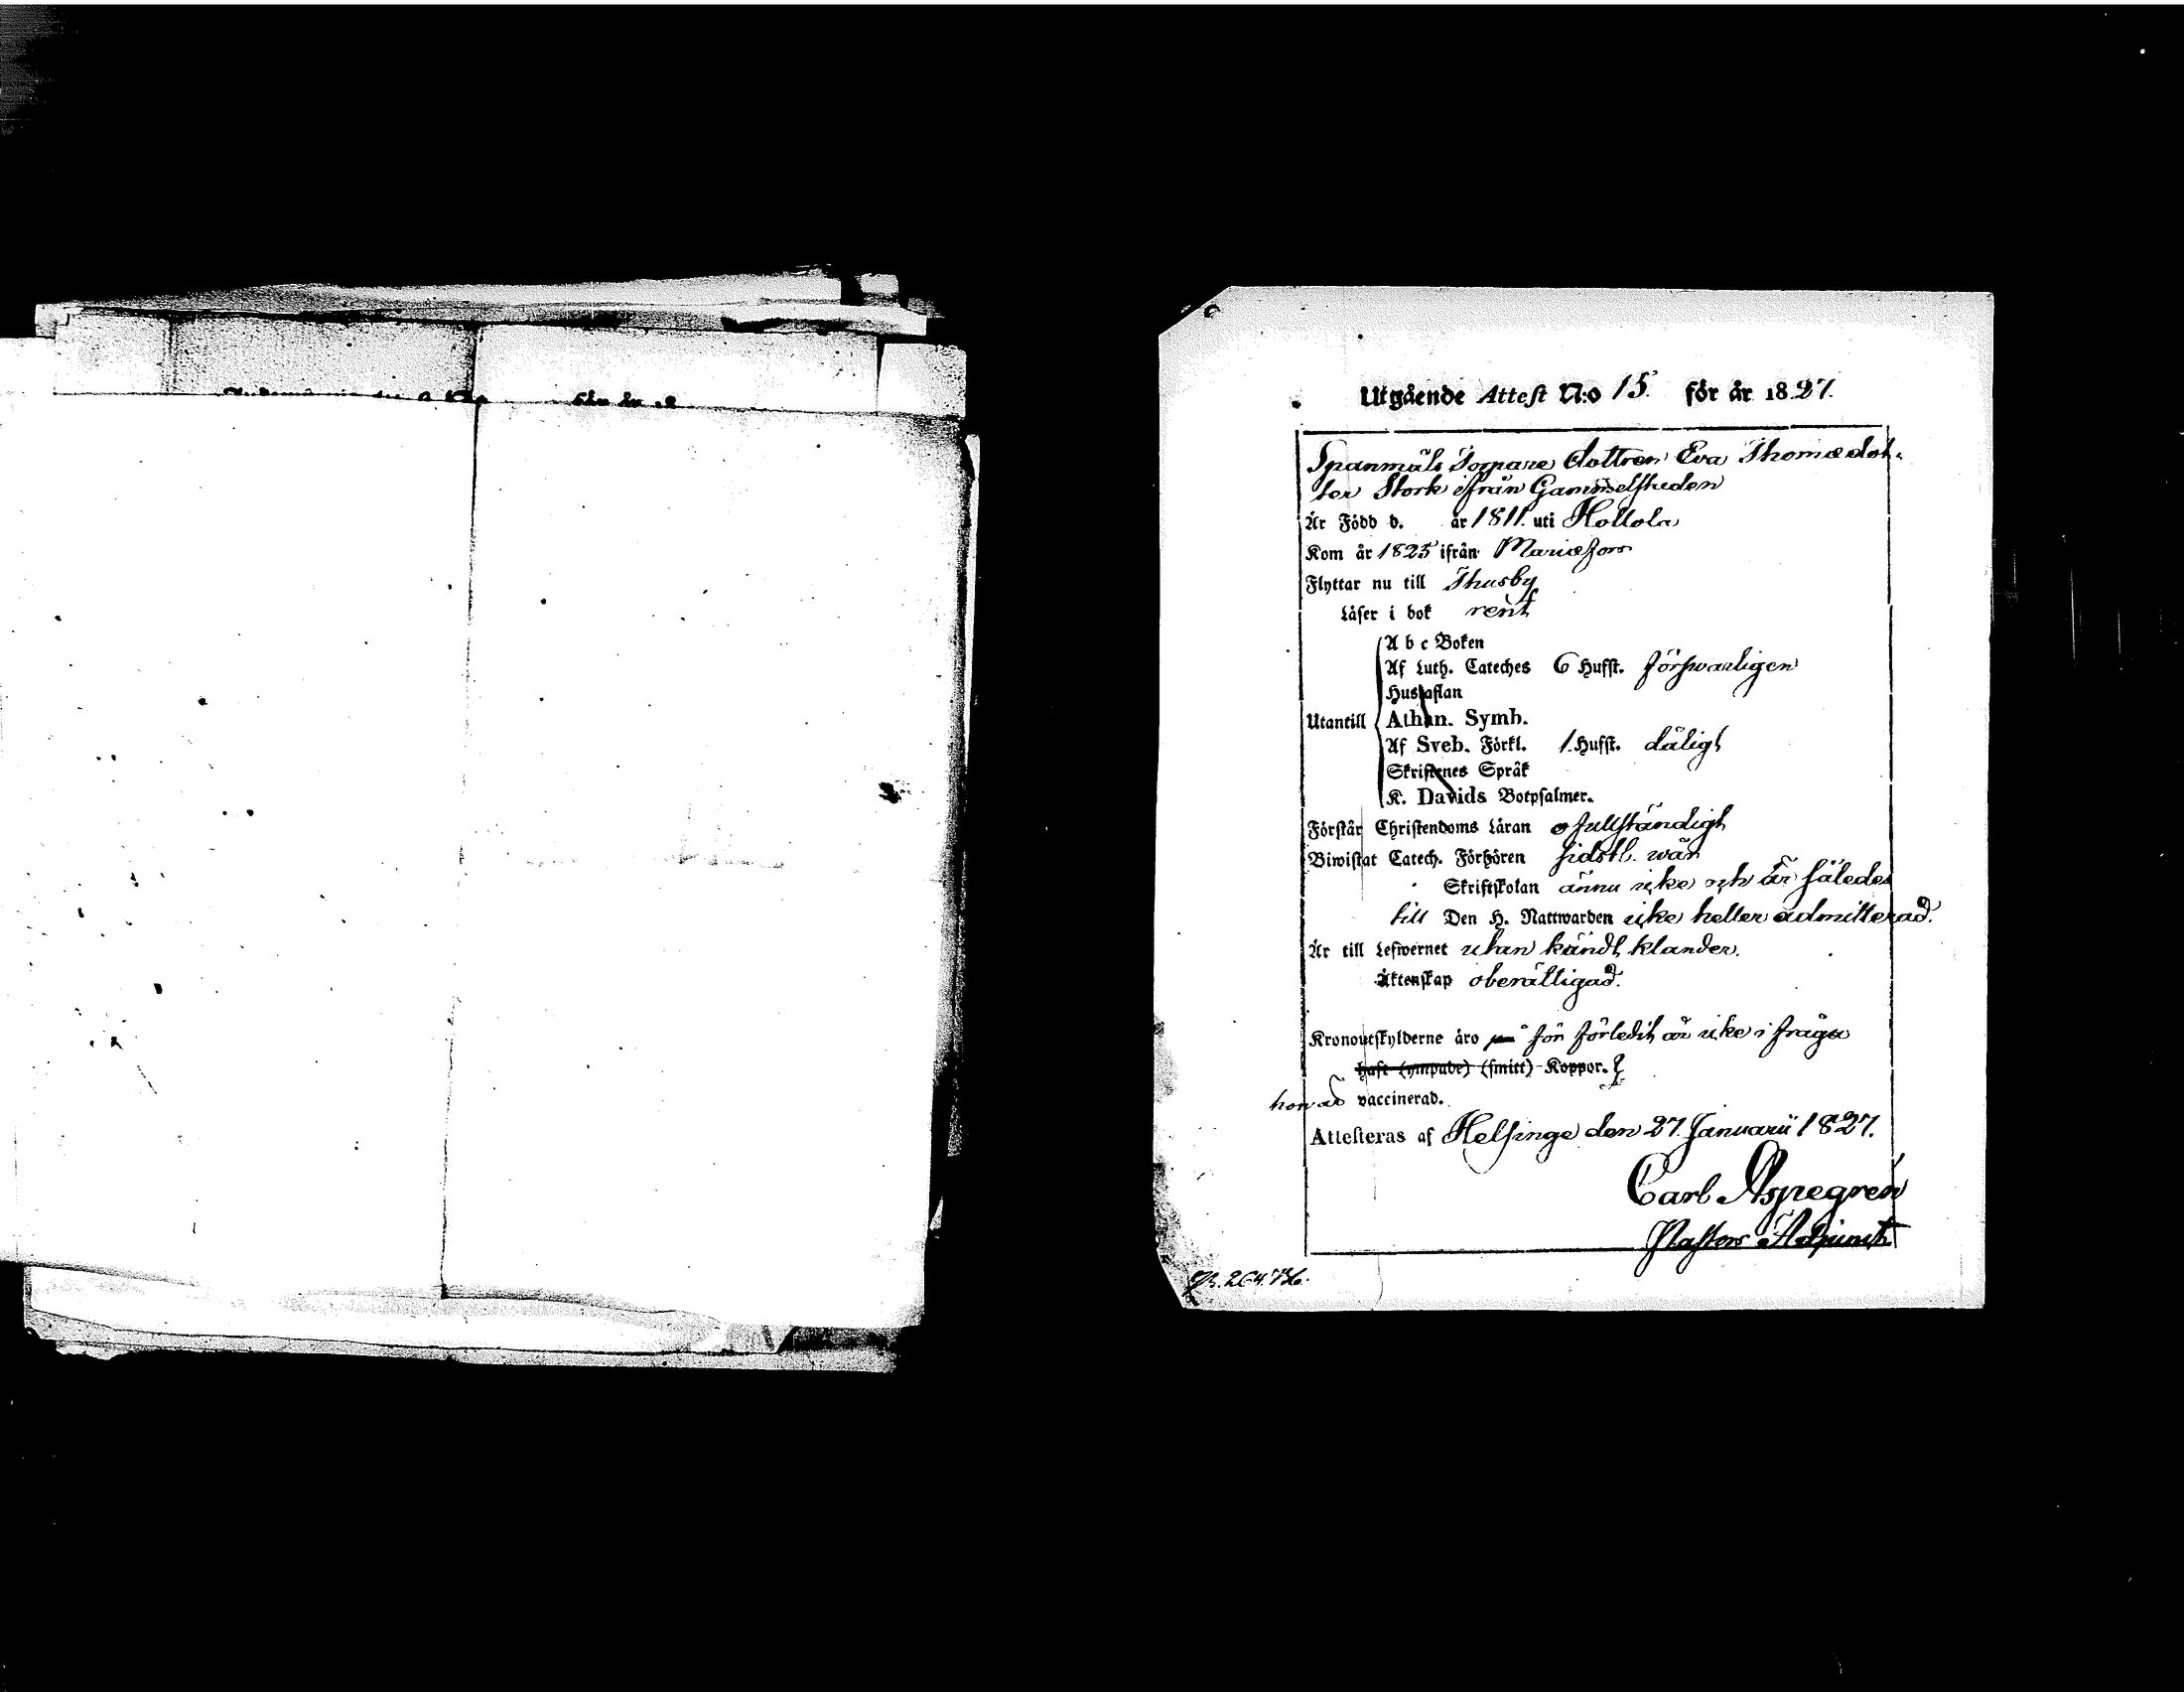 Utgående Attest N:o 15. för år 1827.
Spanmåls Torpare dottren Eva Thomædot-
ter Stork ifrån Gammelstaden
Är Född d. år 1811. uti Hollola
Kom år 1825 ifrån Mariæfors
Flyttar nu till Thusby
Läser i bok rent
A b c Boken
Af Luth. Cateches 6 Hufst. försvarligen
Hustaflan
Utantill Athan. Symb.
Af Sveb. Förkl. 1. Hufst. dåligt
Skriftenes Språk
K. Davids Botpsalmer.
Förstår Christendoms Läran ofullständigt
Biwistat Catech. Förhören sidstl. wår
Skriftskolan ännu icke och är således
till Den H. Nattwarden icke heller admitterad.
Är till Lefwernet utan kändt klander.
Äktenskap oberättigad.
Kronoutskylderne äro för förledit år icke i fråga
haft (ympade) (smitt) Koppor.
hon är vaccinerad.
Attesteras af Helsinge den 27. Januarii 1827.
Carl Aspegrén
Pastors Adjunct